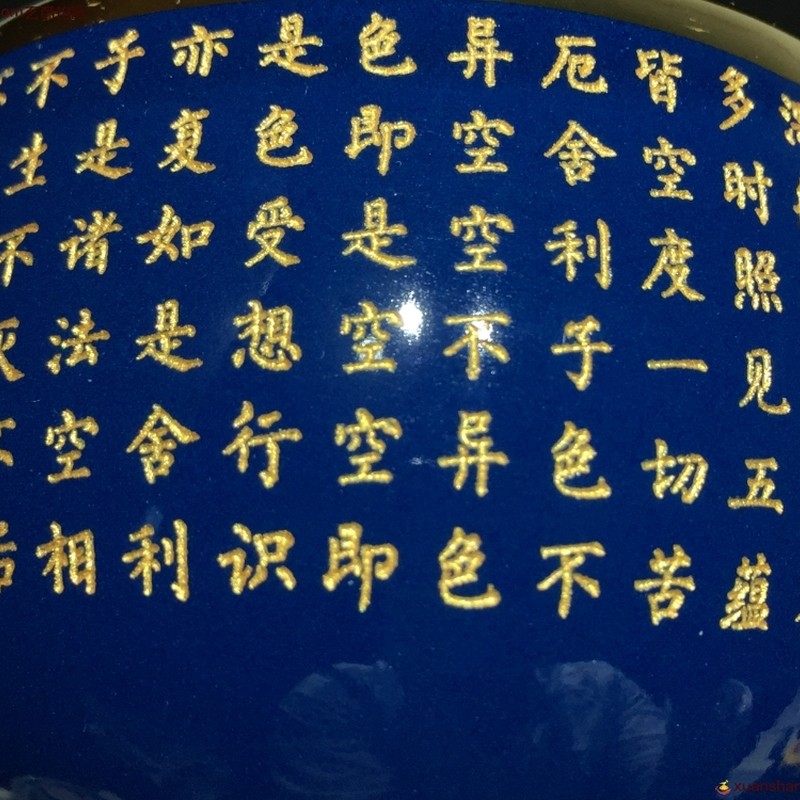 多时照见五蕴
皆空度一切苦
厄舍利子色不
异空空不异色
色即是空空即
是色受想行识
亦复如是舍利
子是诸法空相
不生不
xuanshan